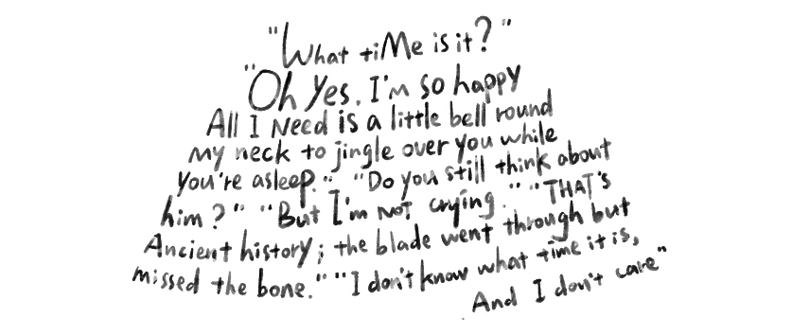 "What tiMe is it?"
"Oh Yes. I'm so happy
All I Need is a little bell round
my neck to jingle over you while
you're asleep." "Do you still think about
him?" "But I'm NOT crying." "THAT'S
Ancient history; the blade went through but
missed the bone." "I don't know what time it is,
And I don't care"